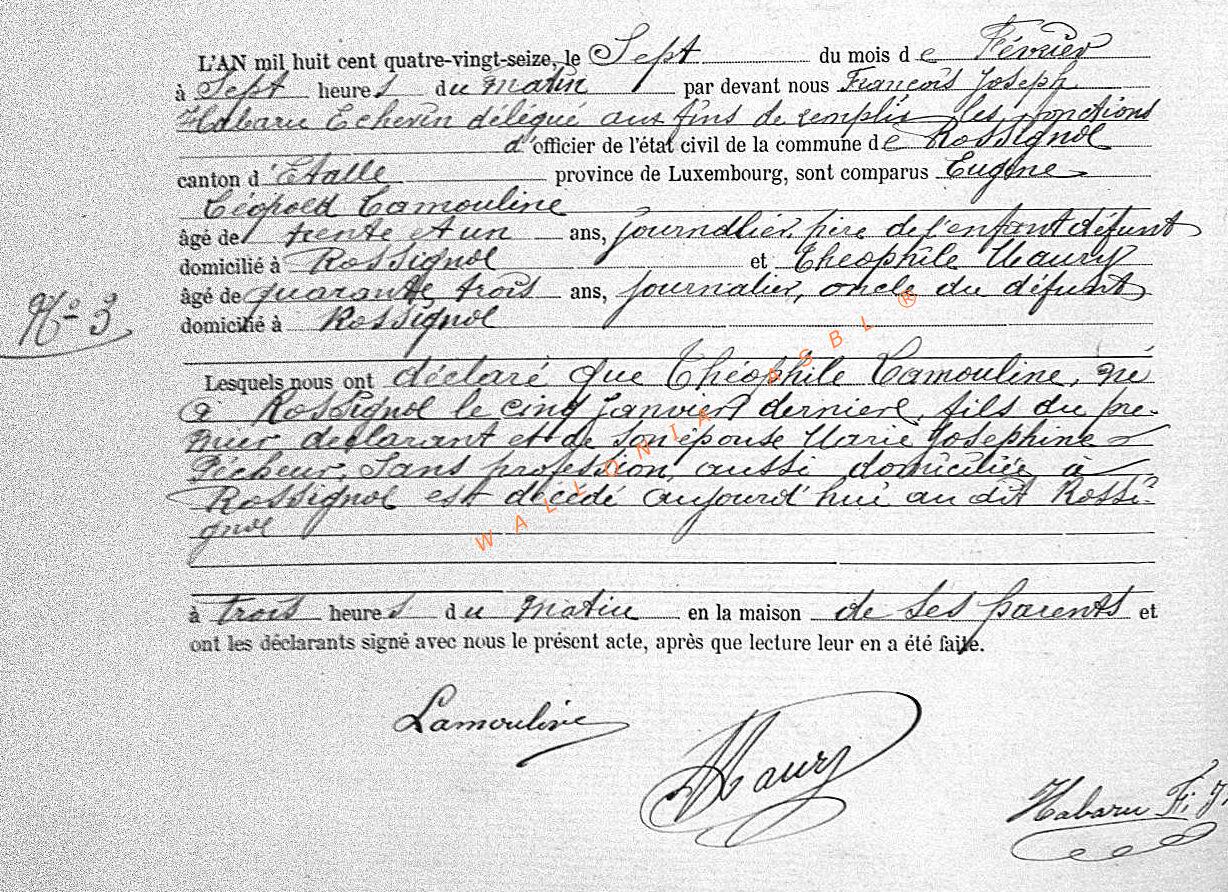 L'AN mil huit cent quatre-vingt-seize, le Sept du mois de Février
à Sept heures du matin par devant nous François Joseph
Habaru Echevin délégué aux fins de remplir les fonctions
d'officier de l'état civil de la commune de Rossignol
canton d'Etalle province de Luxembourg, sont comparus Eugène
Léopold Lamouline
âgé de trente et un ans, journalier, père de l'enfant défunt
domicilié à Rossignol et Théophile Maury
âgé de quarante trois ans, journalier, oncle du défunt
N° 3
domicilié à Rossignol
Lesquels nous ont déclaré que Théophile Lamouline, né
à Rossignol le cinq janvier dernier, fils du pre-
mier déclarant et de son épouse Marie Josephine
Pécheur, sans profession, aussi domiciliée à
Rossignol est décédé aujourd'hui au dit Rossi-
gnol
à trois heures du matin en la maison de ses parents et
ont les déclarants signé avec nous le présent acte, après que lecture leur en a été faite.
Lamouline
Maury
Habaru F. J.
WALLONIA ASBL ®